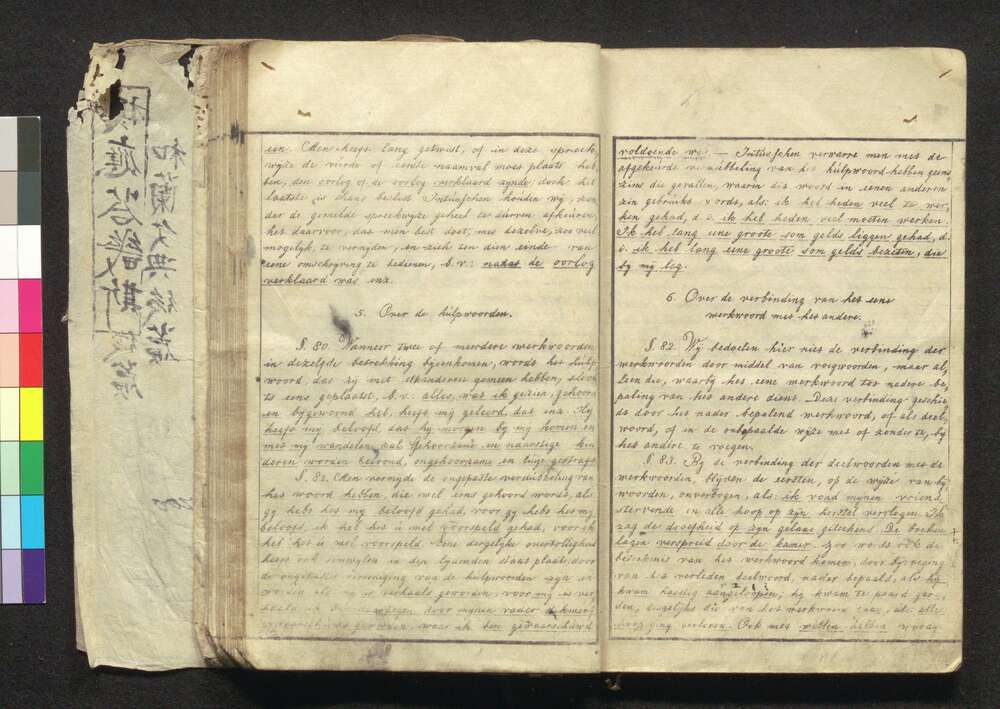 een. Men heeft lang getwist, of in deze spreek
wijze de vierde of eerste naamval moet plaats heb
ben, den oorlog of de oorlog verklaard zynde, doch het
laatste is thans beslist. Intusschen houden wy, zon
der de gemelde spreekwyze geheel te durven afkeuren,
het daarvoor, dat men best doet, met dezelve, zoo veel
mogelyk, te vermyden, en zich ten dien einde van
eene omschryving te bedienen, b.v.: nadat de oorlog
verklaard was enz.
5. Over de hulpwoorden.
§. 80. Wanneer twee of meerdere werkwoorden
in dezelfde betrekking byeenkomen, wordt het hulp
woord, dat zy met elkanderen gemeen hebben, slechts
te eens geplaatst, b.v.: alles, wat ik gezien, gehoord
en bygewoond heb, heeft my geleerd, dat enz. Hy
heeft my beloofd, dat hy morgen by my komen en
met my wandelen zal. Gehoorzame en naarstige kin
deren worden beloond, ongehoorzame en luije gestraft.
§. 81. Men vermyde de ongepaste verdubbeling van
het woord hebben, die wel eens gehoord wordt, als:
gy hebt het my beloofd gehad, voor gy hebt het my
beloofd, ik heb het u wel voorspeld gehad, voor ik
heb het u wel voorspeld. Eene dergelyke overtolligheid
heeft ook somwylen in den lydenden staat plaats, door
de ongepaste vereeniging van de hulpwoorden zyn en
worden als my is verhaald geworden, voor my is ver
door mynen vader
geworden, waar ik ben gewaarschuwd
voldoende was. — Intusschen verwarre men met de
afgekeurde verdubbeling van dit hulpwoord hebben geens
zins die gevallen, waarin dit woord in eenen anderen
zin gebruikt wordt, als: ik heb heden veel te wer
ken gehad, d. i. ik heb heden veel moeten werken.
Ik heb lang eene groote som gelds liggen gehad, d.
i. ik heb lang eene groote som gelds bezeten, die
by my lag.
6. Over de verbinding van het eene
werkwoord met het andere.
§. 82. Wij bedoelen hier niet de verbinding der
werkwoorden door middel van voegwoorden, maar al
leen die, waarby het eene werkwoord tot nadere be
paling van het andere dient. Deze verbinding geschie
dt door het nader bepalend werkwoord, of als deel
woord, of in de onbepaalde wyze met of zonder te, by
het andere te voegen.
§. 83. By de verbinding der deelwoorden met de
werkwoorden, blyven de eersten, op de wyze van by
woorden, onverbogen, als: ik vond mynen vriend
stervende en alle hoop op zyn herstel vervlogen. Ik
zag de droefheid op zyn gelaat geteekend. De boeken
lagen verspreid door de kamer. Zoo wordt ook de
beteekenis van het werkwoord komen, door byvoeging
van het verleden deelwoord, nader bepaald, als: hy
kwam haastig aangeloopen; hy kwam te paard gere
den; desgelyks die van het werkwoord gaan, als: alle
hoop ging verloren. Ook met willen, hebben, wordt
和蘭文典後編